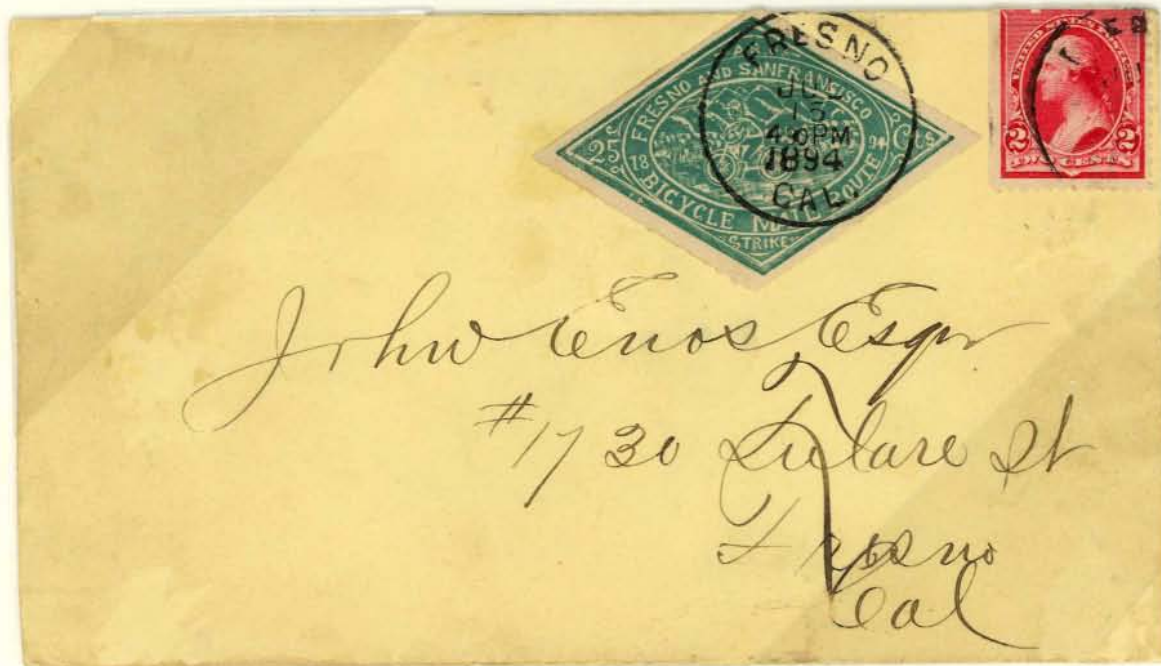 FRESNO AND SANFRANSISCO
25 Cts
18 94
BICYCLE MAIL ROUTE
STRIKE
FRESNO
JUL
13
4-0PM
1894
CAL.
UNITED STATES
2 2
John Enos Esqr
#1730 Tulare St
Fresno
Cal
7